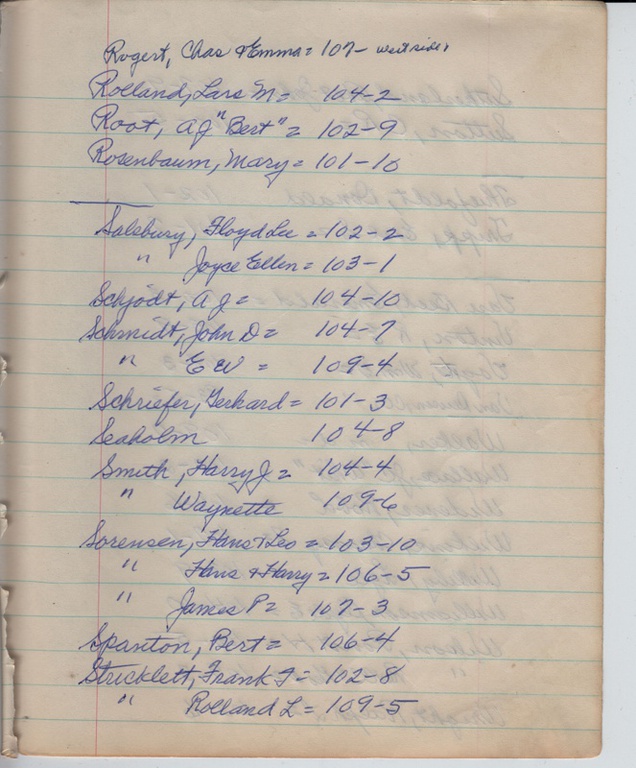 Rogert, Chas + Emma = 107- west side.
Rolland, Lars M = 104-2
Root, A J "Bert" = 102-9
Rosenbaum, Mary = 101-10
Salsbury, Floyd Lee = 102-2
" Joyce Ellen = 103-1
Schjödt, A J = 104-10
Schmidt, John D = 104-7
" E W = 109-4
Schriefer, Gerhard = 101-3
Seaholm 104-8
Smith, Harry J = 104-4
" Waynette 109-6
Sorensen, Hans + Leo = 103-10
" Hans + Harry = 106-5
" James P = 107-3
Spanton, Bert = 106-4
Stricklett, Frank F = 102-8
" Rolland L = 109-5